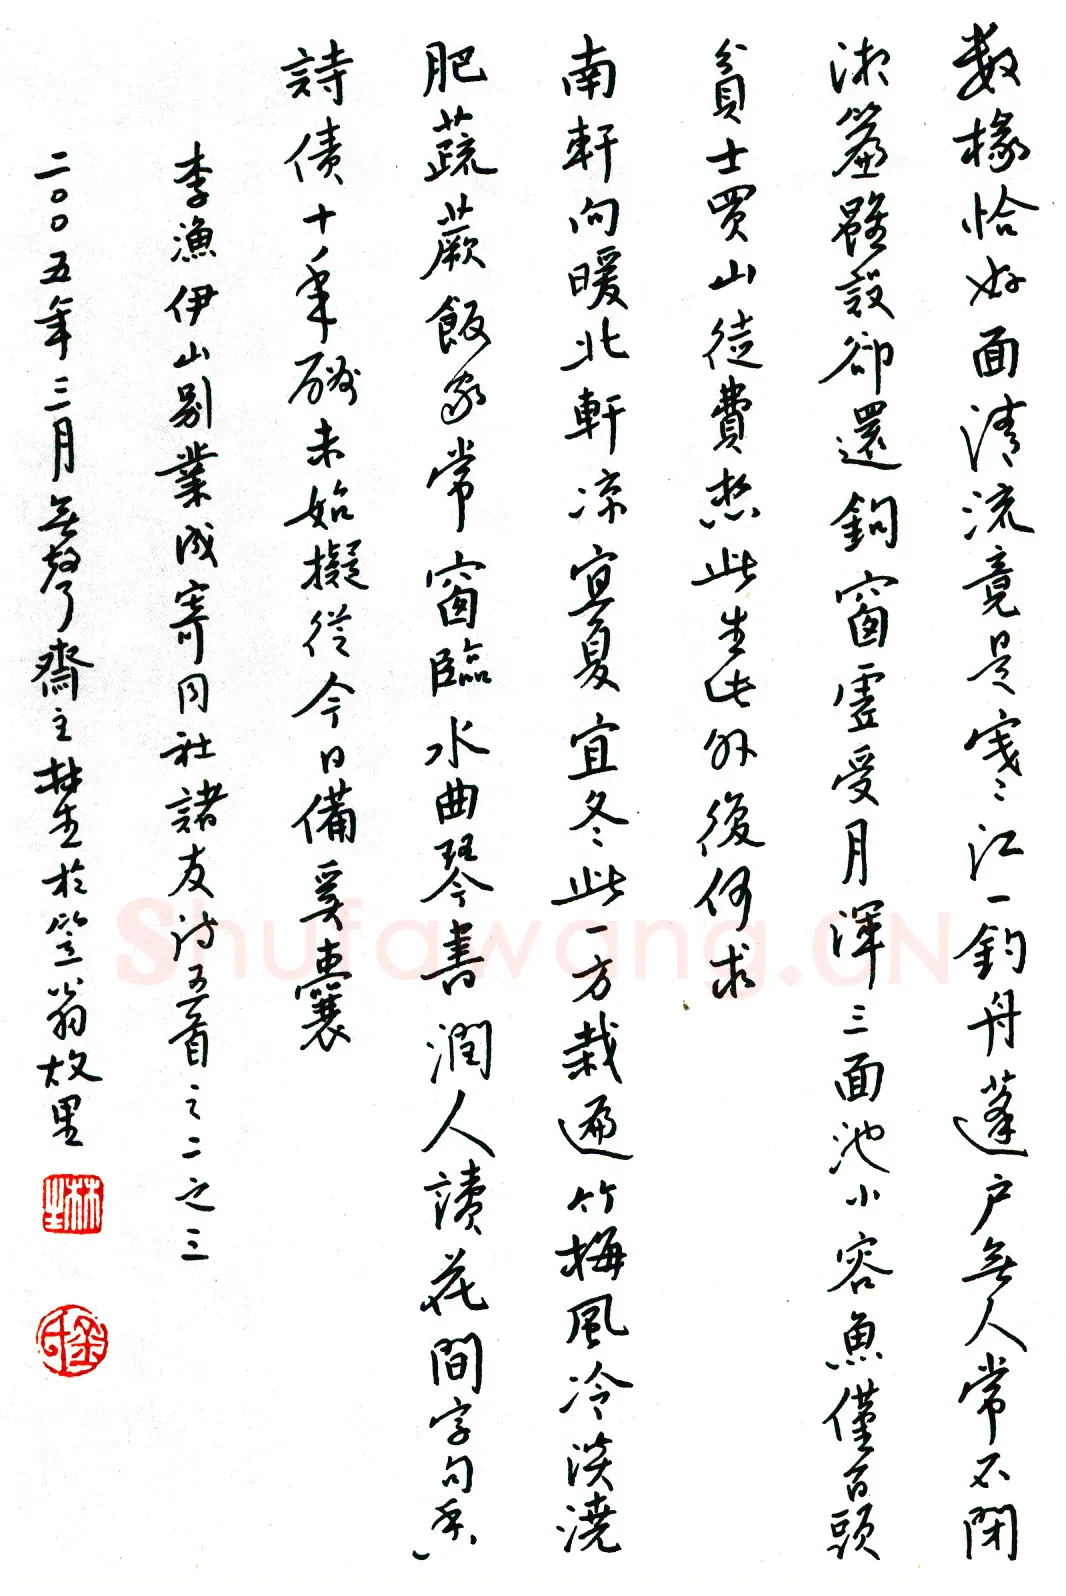 数椽恰好面清流竟是寒江一釣舟蓬戶無人常不閉
湘簾雖設卻還鉤窗虛受月渾三面池小容魚僅百頭
貧士買山徒費此生此外復何求
南軒向暖北軒凉宜夏宜冬此一方栽遍竹梅風冷淡澆
肥蔬蕨飯家常窗臨水曲琴書潤人讀花間字句香
詩债十年酬未始擬從今日備奚囊
李漁伊山别業成寄同社諸友诗五首之二之三
二〇〇五年三月無聲齋主林生於笠翁故里
林生
Shufawang.CN